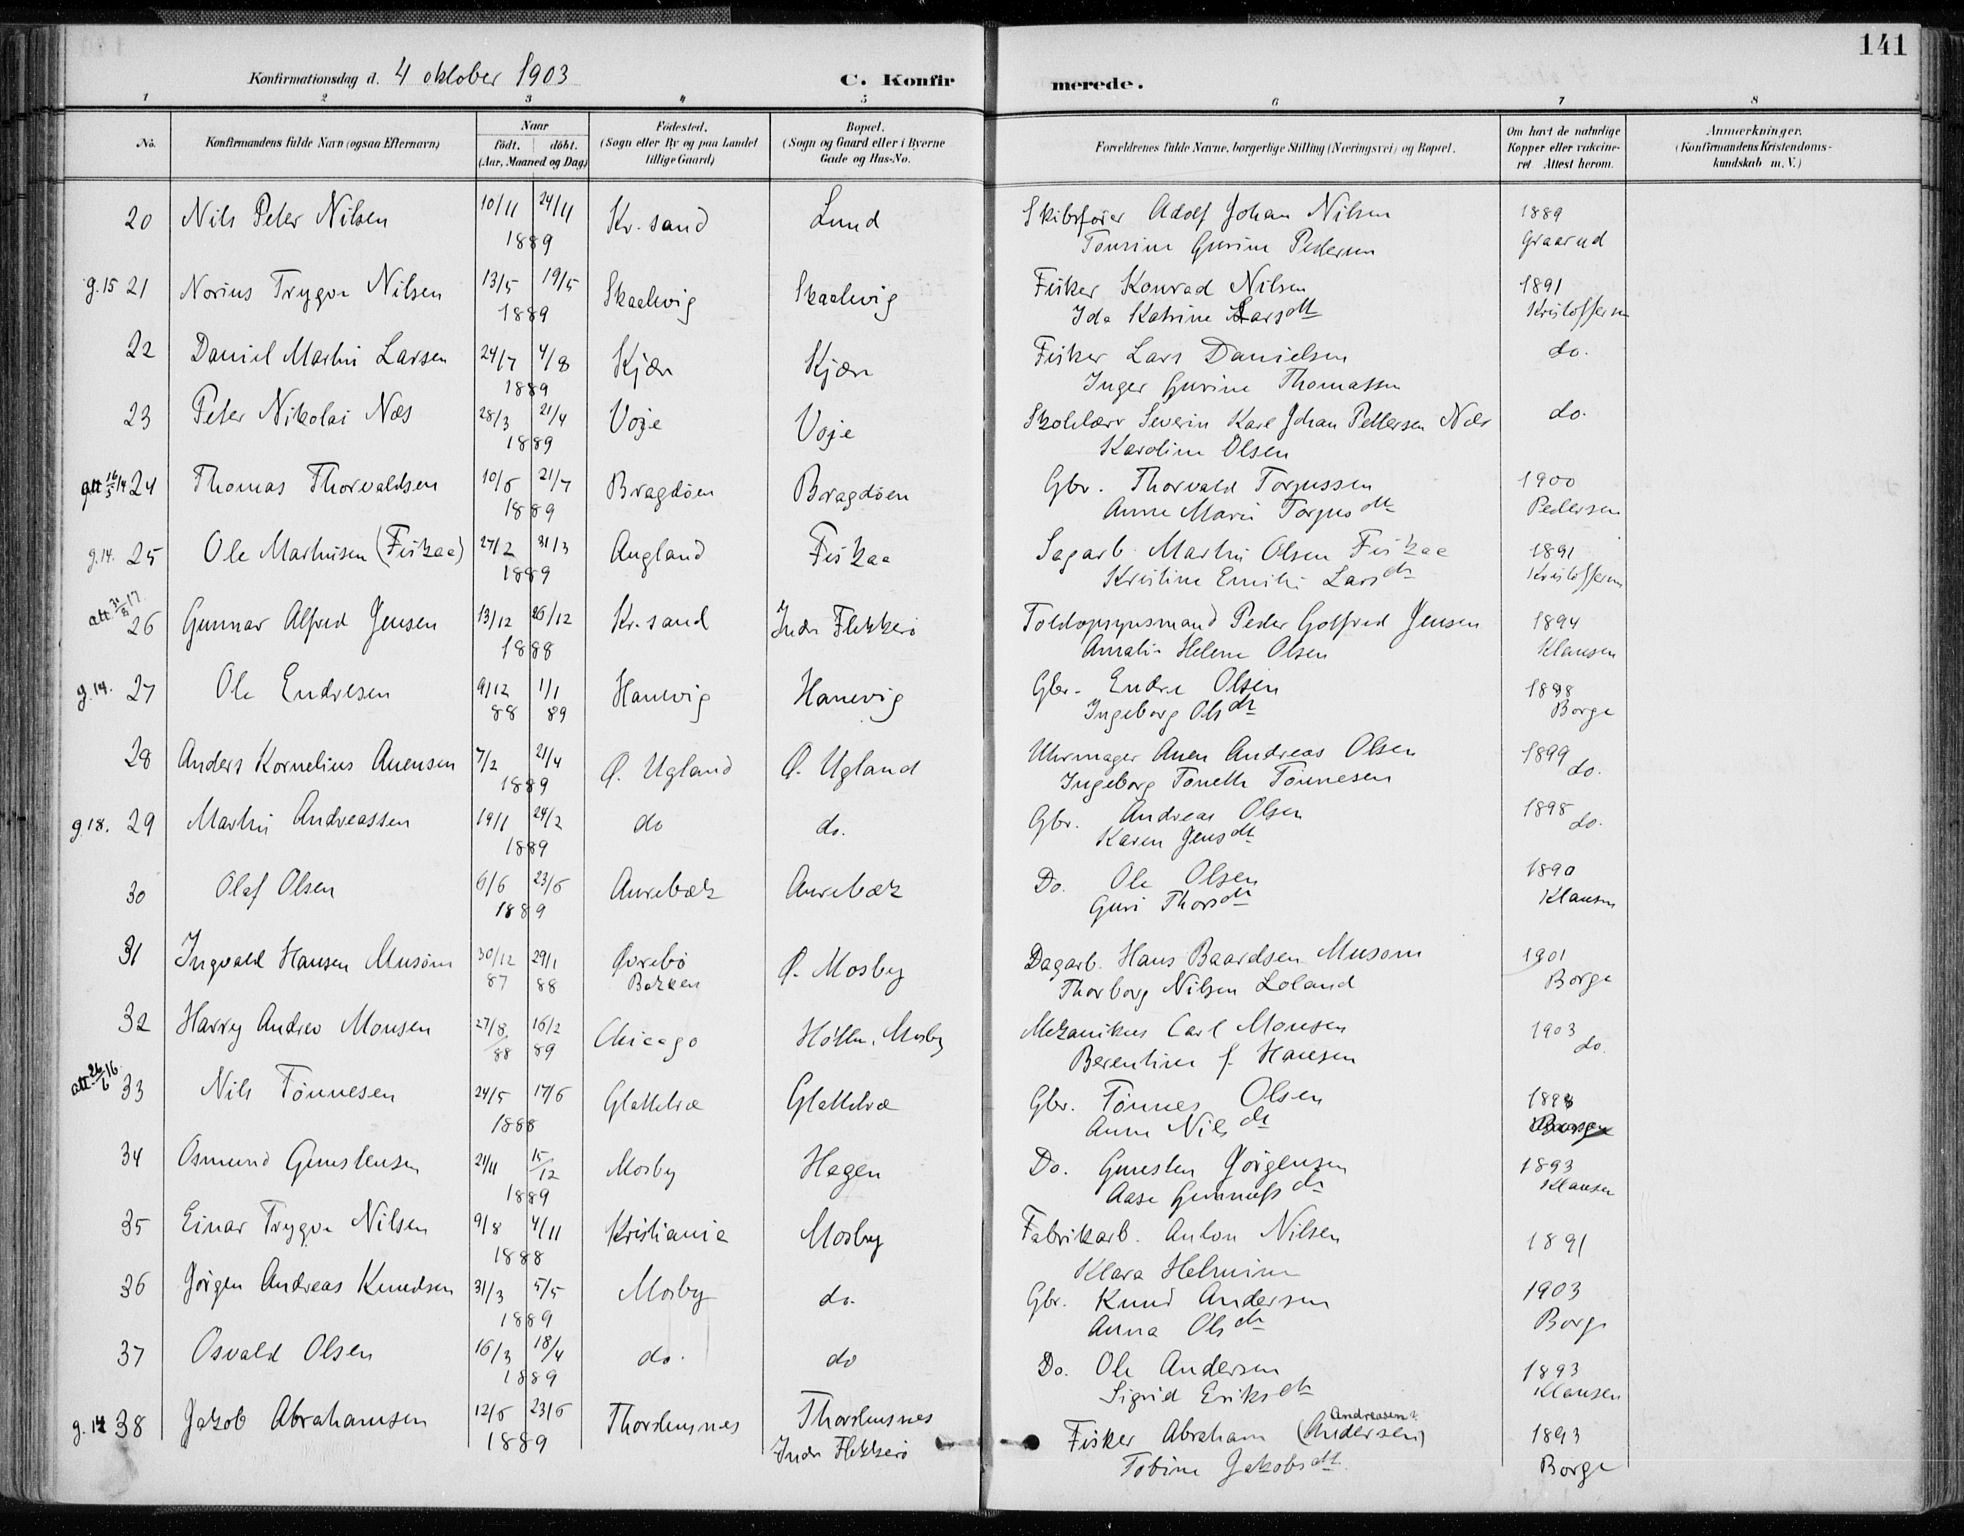 141
Konfirmationsdag d. 4 oktober 1903
C. Konfirmerede.
1 2 3 4 5 6 7 8
No. Konfirmandens fulde Navn (ogsaa Efternavn) Naar født. døbt. (Aar, Maaned og Dag) Fødested. (Sogn eller By og paa Landet tillige Gaard) Bopæl. (Sogn og Gaard eller i Byerne Gade og Hus-No. Forældrenes fulde Navne, borgerlige Stilling (Næringsvei) og Bopæl. Om havt de naturlige Kopper eller vakcineret Attest herom. Anmærkninger. (Konfirmandens Kristendomskundskab m. V.)
20 Nils Peter Nilsen 10/11 24/11 1889 Kr.sand Lund Skibsfører Adolf Johan Nilsen 1889
Tomine Gurine Pedersen Graarud
g.15 21 Norius Trygve Nilsen 13/5 19/5 1889 Skaalevig Skaalevig Fisker Konrad Nilsen 1891
Ida Katrine Larsdtt Kristoffersen
22 Daniel Martin Larsen 24/7 4/8 1889 Kjær Kjær Fisker Lars Danielsen do.
Inger Gurine Thomassen
23 Peter Nikolai Næs 28/3 21/4 1889 Voje Voje Skolelærer Severin Karl Johan Pettersen Næs do.
Karoline Olsen
att 16/5 14 24 Thomas Thorvaldsen 10/6 21/7 1889 Bragdøen Bragdøen Gbr. Thorvald Torjussen 1900
Anne Marie Torjusdtr Pedersen
g.14. 25 Ole Martinsen (Fiskaa) 27/2 31/3 1889 Augland Fiskaa Sagarb. Martin Olsen Fiskaa 1891
Kristine Emilie Larsdtr Kristoffersen
att. 31/8 17 26 Gunnar Alfred Jensen 13/12 26/12 1888 Kr.sand Indr Flekkerø Toldopsynsmand Peder Gotfred Jensen 1894
Amalie Helene Olsen Klausen
g.14. 27 Ole Endresen 9/12 88 1/1 89 Hanevig Hanevig Gbr. Endre Olsen 1898
Ingeborg Olsdtr Borge
28 Anders Kornelius Auensen 7/2 21/4 1889 Ø. Ugland Ø. Ugland Uhrmager Auen Andreas Olsen 1899
Ingeborg Tonette Tønnesen do.
g.18. 29 Martin Andreassen 19/1 24/2 1889 do do. Gbr. Andreas Olsen 1898
Karen Jensdtr do.
30 Olaf Olsen 6/6 23/6 1889 Aurebæk Aurebæk Do. Ole Olsen 1890
Guri Thorsdtr Klausen
31 Ingvald Hansen Musøm 30/12 87 29/1 88 Øvrebø Bakken Ø. Mosby Dagarb. Hans Baardsen Musom 1901
Thorborg Nilsen Loland Borge
32 Harry Andrew Monsen 27/8 88 16/2 89 Chicago Høllen, Mosby Mekanikus Carl Monsen 1903
Berentine f. Hansen do.
att 26/6 16 33 Nils Tønnesen 24/5 17/6 1888 Glattetræ Glattetræ Gbr. Tønnes Olsen 1898
Anne Nilsdtr
34 Osmund Gunstensen 21/11 15/12 1889 Mosby Hagen Do. Gunsten Jørgensen 1893
Aase Gunnufsdtr Klausen
35 Einar Trygve Nilsen 9/8 4/11 1888 Kristiania Mosby Fabrikarb. Anton Nilsen 1891
Klara Helmine
36 Jørgen Andreas Knudsen 31/3 5/5 1889 Mosby do. Gbr. Knud Andersen 1903
Anna Olsdtr Borge
37 Osvald Olsen 16/3 18/4 1889 do. do Do. Ole Andersen 1893
Sigrid Eriksdtr Klausen
g.14 38 Jakob Abrahamsen 12/6 23/6 1889 Thorslensnes Thorslensnes Indr Flekkerø Fisker Abraham (Andersen) Andreasen? 1893
Tobine Jakobsdtt. Borge